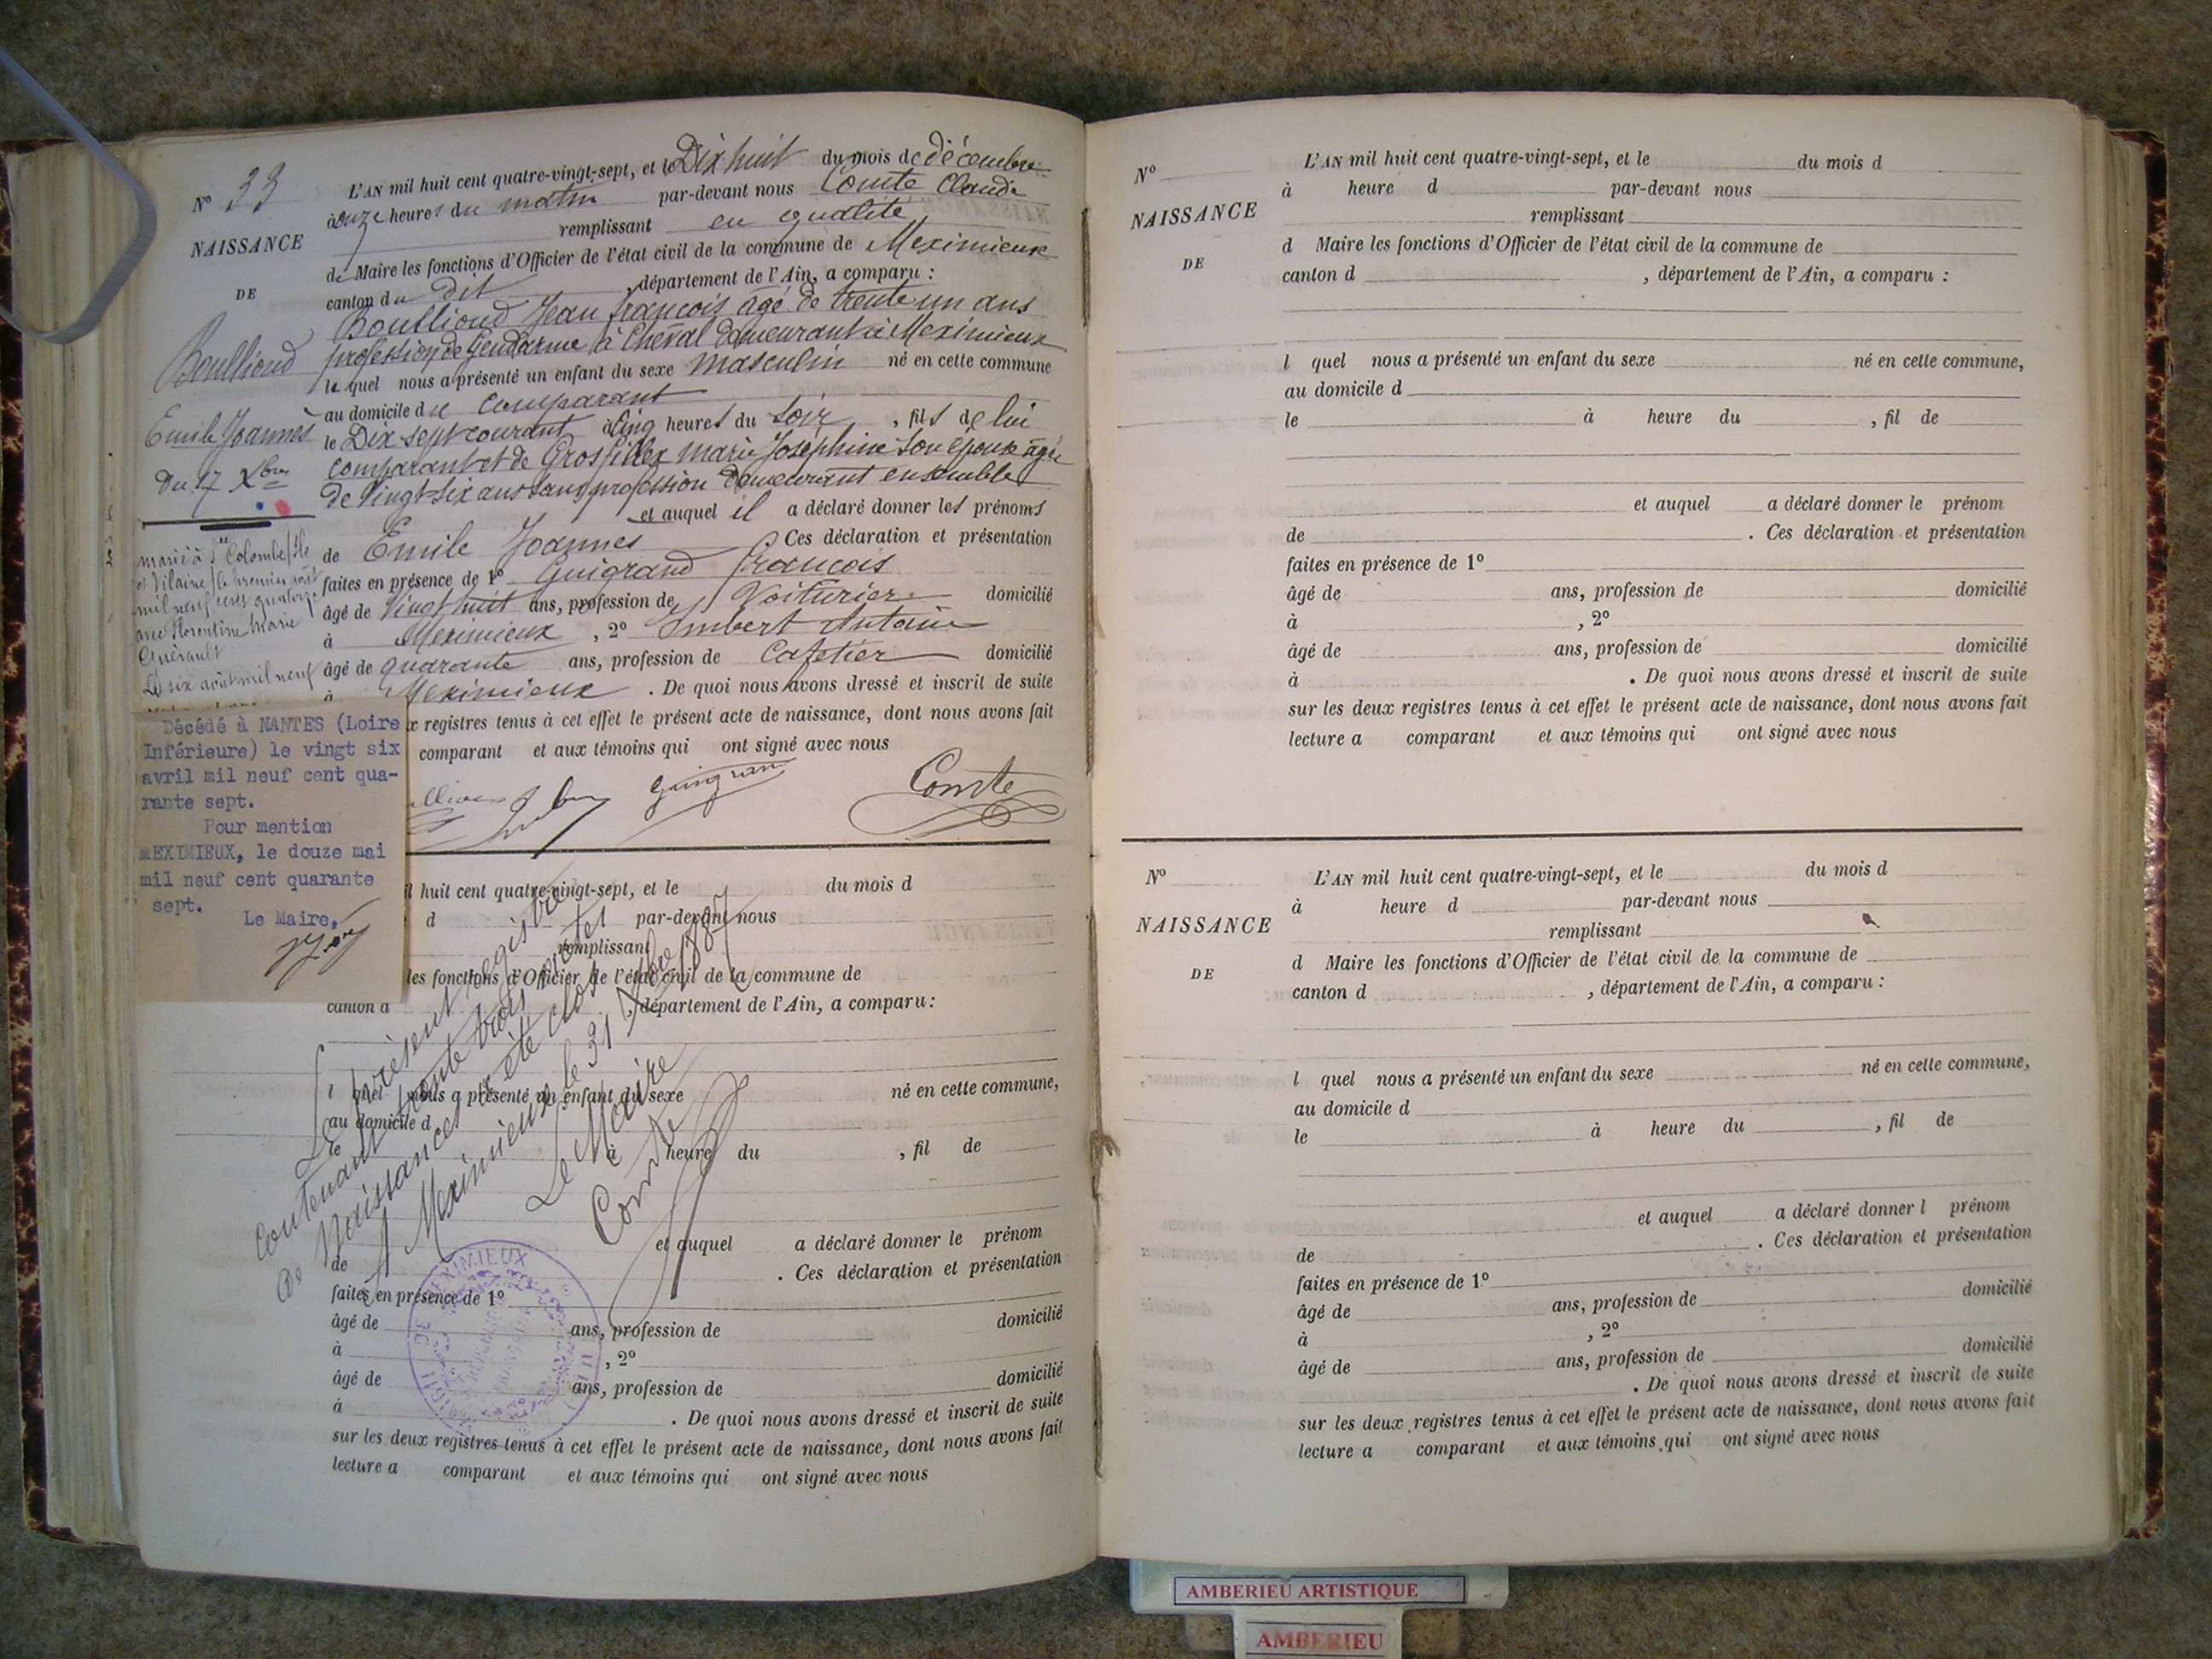 N° 33
NAISSANCE
DE
Boullioud
Emile Joannès
Du 17 Xbre
marié à Ste Colombe (Ile
et Vilaine) le premier août
mil neuf cent quatorze
avec Florentine Marie
Guérault
Le six août mil neuf
Décédé à NANTES (Loire
Inférieure) le vingt six
avril mil neuf cent qua-
rante sept.
Pour mention
MEXIMIEUX, le douze mai
mil neuf cent quarante
sept.
Le Maire,
L'AN mil huit cent quatre-vingt-sept, et le Dix huit du mois de décembre
à onze heures du matin par-devant nous Comte Claude
remplissant en qualité
de Maire les fonctions d'Officier de l'état civil de la commune de Meximieux
canton du dit , département de l'Ain, a comparu :
Boullioud Jean françois âgé de trente un ans
profession de Gendarme à Cheval demeurant à Meximieux
le quel nous a présenté un enfant du sexe masculin né en cette commune
au domicile du comparant
le Dix sept courant à cinq heures du soir , fils de lui
comparant et de Grosfillex marie Joséphine son épouse âgée
de vingt-six ans sans profession demeurant ensemble
et auquel il a déclaré donner les prénoms
de Emile Joannes Ces déclaration et présentation
faites en présence de 1° Guigrand françois
âgé de vingt huit ans, profession de Voiturier domicilié
à Meximieux , 2° Imbert Antoine
âgé de quarante ans, profession de Cafetier domicilié
à Meximieux . De quoi nous avons dressé et inscrit de suite
x registres tenus à cet effet le présent acte de naissance, dont nous avons fait
comparant et aux témoins qui ont signé avec nous
Comte
il huit cent quatre-vingt-sept, et le du mois d
d par-devant nous
remplissant
les fonctions d'Officier de l'état civil de la commune de
canton d , département de l'Ain, a comparu :
l quel nous a présenté un enfant du sexe né en cette commune,
au domicile d
le à heure du , fil de
et auquel a déclaré donner le prénom
de . Ces déclaration et présentation
faites en présence de 1°
âgé de ans, profession de domicilié
à , 2°
âgé de ans, profession de domicilié
à . De quoi nous avons dressé et inscrit de suite
sur les deux registres tenus à cet effet le présent acte de naissance, dont nous avons fait
lecture a comparant et aux témoins qui ont signé avec nous
Le présent registre
contenant trente trois actes
de Naissances a été clos
A Meximieux le 31 Xbre 1887
Le Maire
Comte
MEXIMIEUX
N°
NAISSANCE
DE
L'AN mil huit cent quatre-vingt-sept, et le du mois d
à heure d par-devant nous
remplissant
d Maire les fonctions d'Officier de l'état civil de la commune de
canton d , département de l'Ain, a comparu :
l quel nous a présenté un enfant du sexe né en cette commune,
au domicile d
le à heure du , fil de
et auquel a déclaré donner le prénom
de . Ces déclaration et présentation
faites en présence de 1°
âgé de ans, profession de domicilié
à , 2°
âgé de ans, profession de domicilié
à . De quoi nous avons dressé et inscrit de suite
sur les deux registres tenus à cet effet le présent acte de naissance, dont nous avons fait
lecture a comparant et aux témoins qui ont signé avec nous
N°
NAISSANCE
DE
L'AN mil huit cent quatre-vingt-sept, et le du mois d
à heure d par-devant nous
remplissant
d Maire les fonctions d'Officier de l'état civil de la commune de
canton d , département de l'Ain, a comparu :
l quel nous a présenté un enfant du sexe né en cette commune,
au domicile d
le à heure du , fil de
et auquel a déclaré donner l prénom
de . Ces déclaration et présentation
faites en présence de 1°
âgé de ans, profession de domicilié
à , 2°
âgé de ans, profession de domicilié
à . De quoi nous avons dressé et inscrit de suite
sur les deux registres tenus à cet effet le présent acte de naissance, dont nous avons fait
lecture a comparant et aux témoins qui ont signé avec nous
AMBERIEU ARTISTIQUE
AMBERIEU